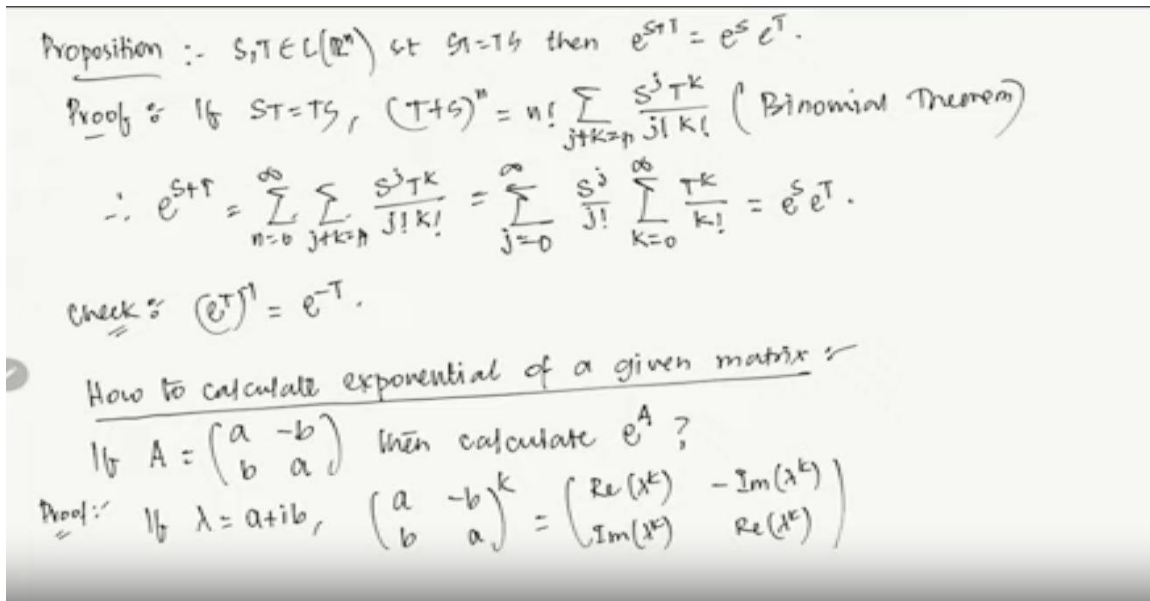 Proposition :- S,T ∈ L(ℝⁿ) st ST=TS then e^{S+T} = e^S e^T.
Proof : If ST=TS, (T+S)^n = n! ∑_{j+k=n} S^j T^k / j! k! (Binomial Theorem)
∴ e^{S+T} = ∑_{n=0}^{∞} ∑_{j+k=n} S^j T^k / j! k! = ∑_{j=0}^{∞} S^j / j! ∑_{k=0}^{∞} T^k / k! = e^S e^T.
Check : (e^T)^{-1} = e^{-T}.
How to calculate exponential of a given matrix :-
If A = (a -b; b a) then calculate e^A ?
Proof :- If λ = a+ib, (a -b; b a)^k = (Re(λ^k) -Im(λ^k); Im(λ^k) Re(λ^k))